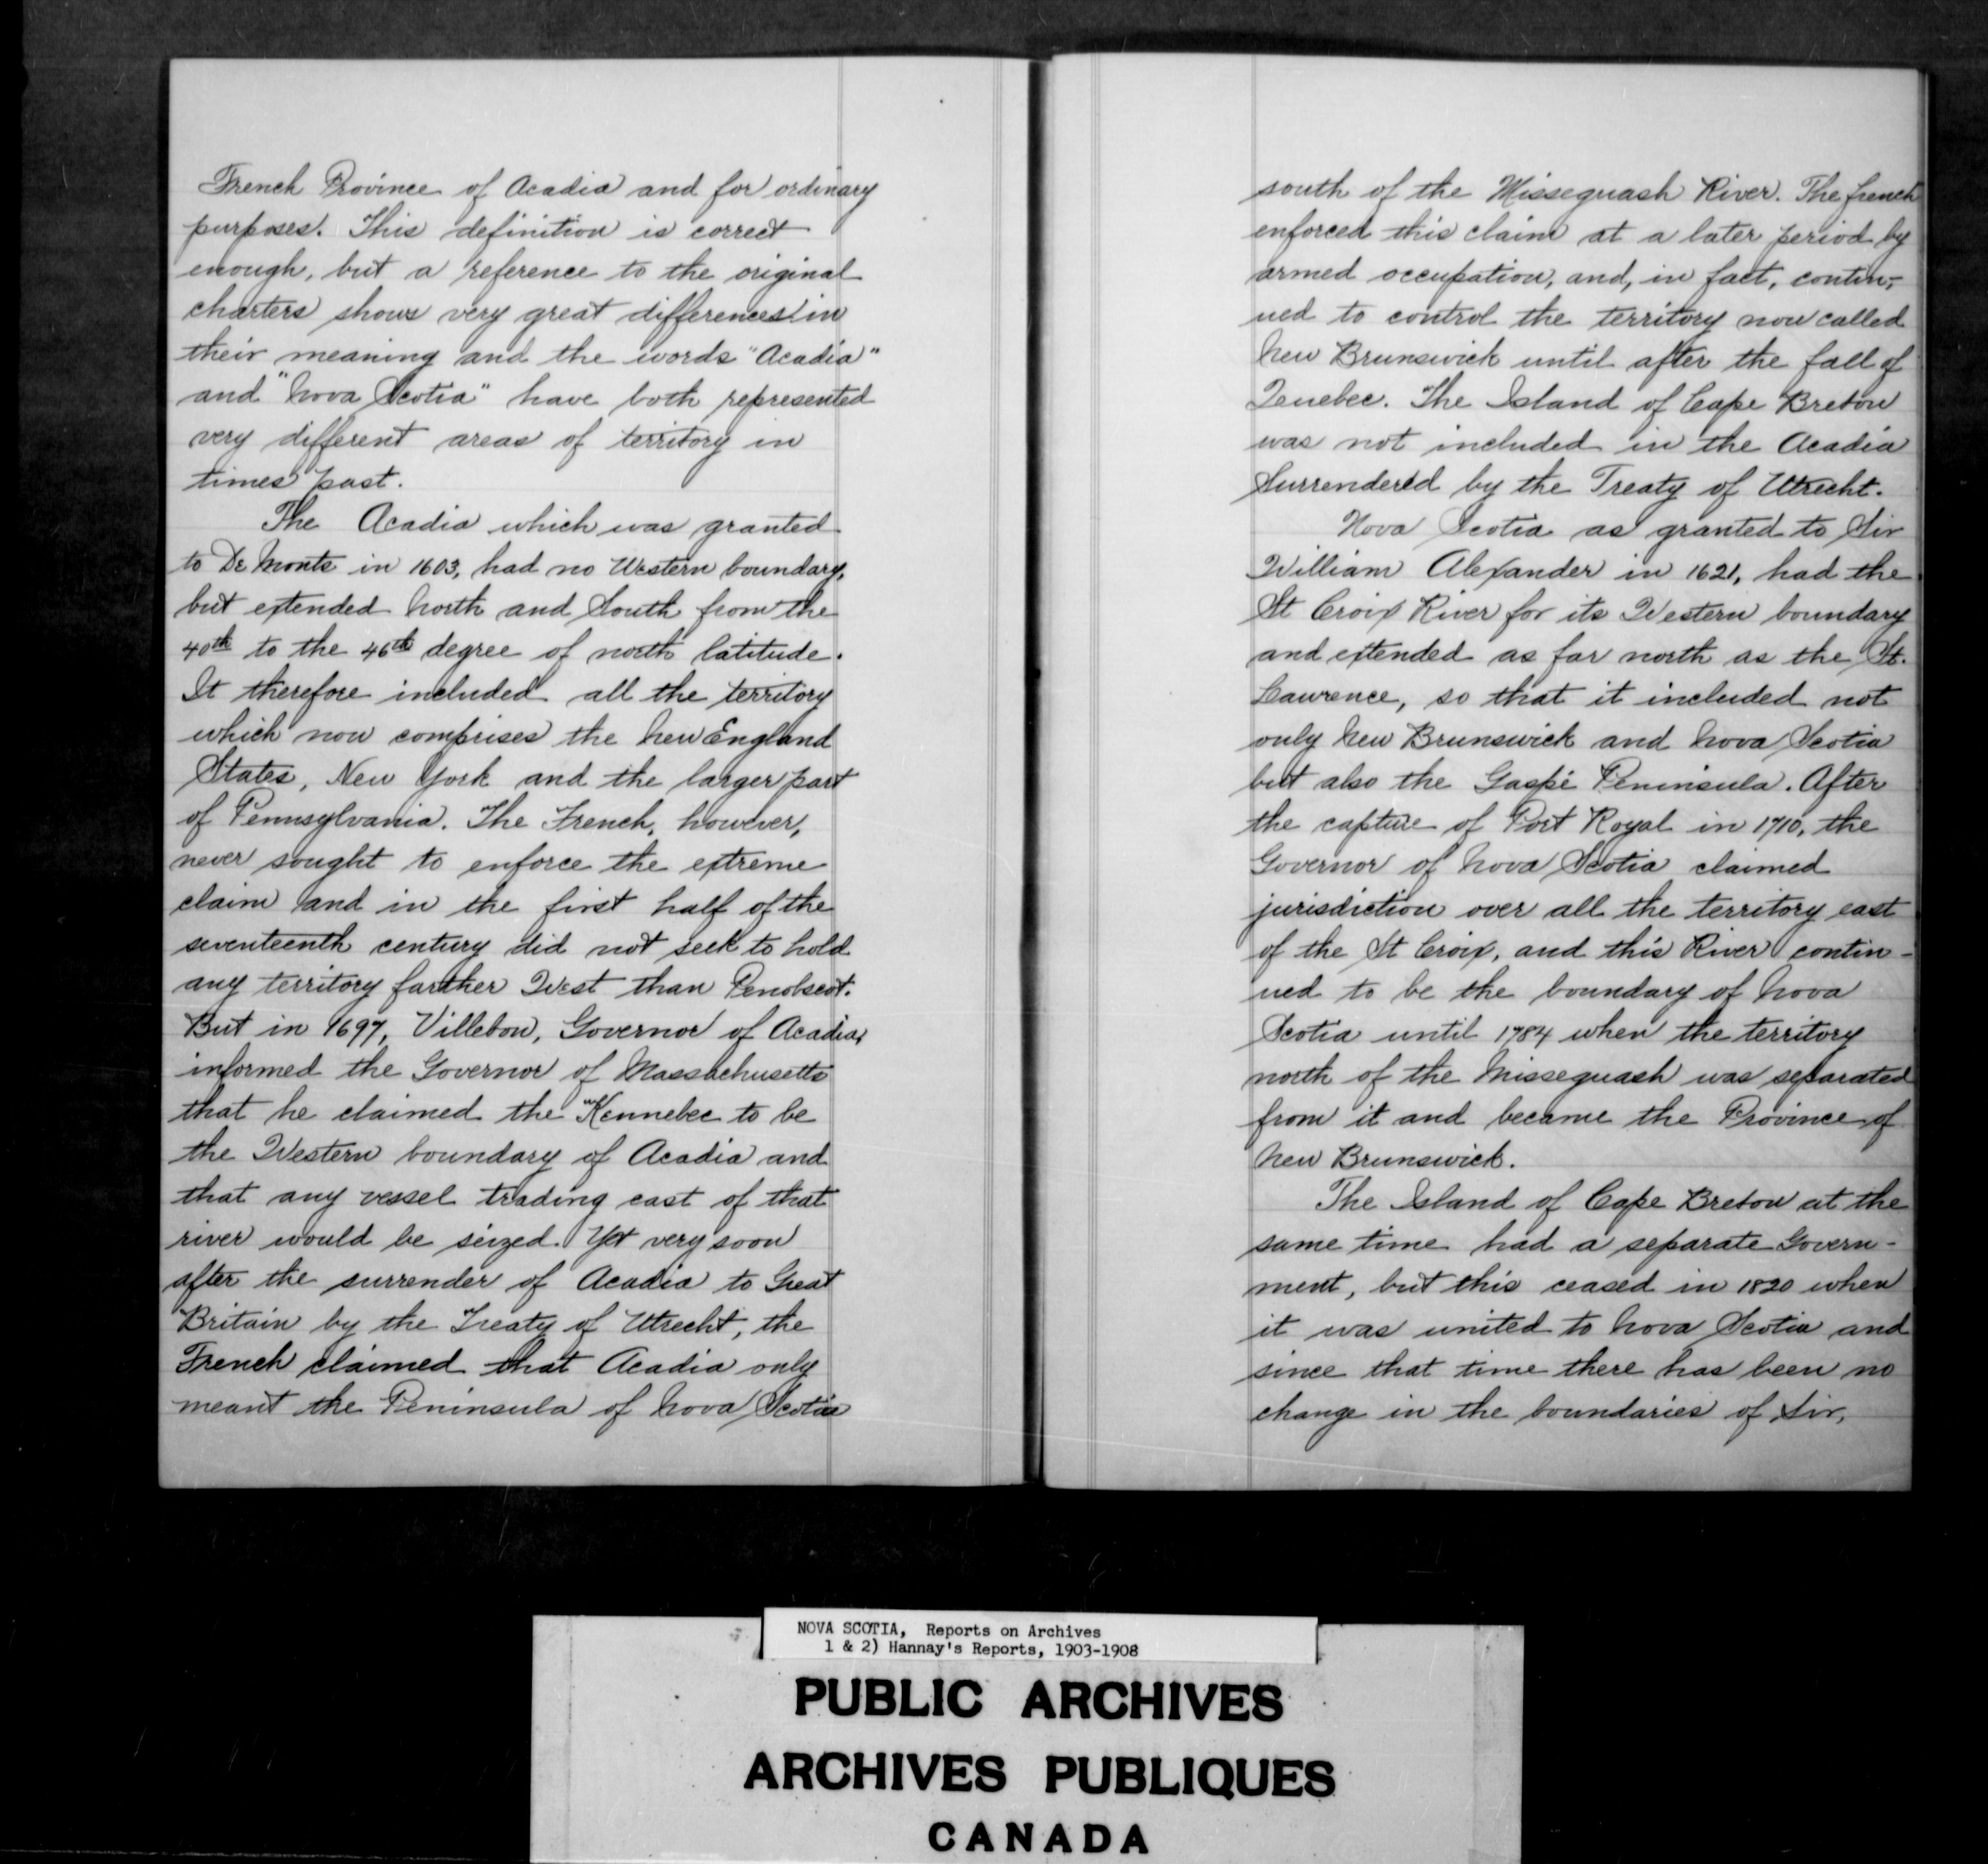 French Province of Acadia and for ordinary
purposes. This definition is correct
enough, but a reference to the original
charters shows very great differences in
their meaning and the words "Acadia"
and "Nova Scotia" have both represented
very different areas of territory in
times past.
The Acadia which was granted
to De Monts in 1603, had no Western boundary,
but extended North and South from the
40th to the 46th degree of north latitude.
It therefore included all the territory
which now comprises the New England
States, New York and the larger part
of Pennsylvania. The French, however,
never sought to enforce the extreme
claim and in the first half of the
seventeenth century did not seek to hold
any territory farther West than Penobscot.
But in 1697, Villebon, Governor of Acadia,
informed the Governor of Massachusetts
that he claimed the Kennebec to be
the Western boundary of Acadia and
that any vessel trading east of that
river would be seized. Yet very soon
after the surrender of Acadia to Great
Britain by the Treaty of Utrecht, the
French claimed that Acadia only
meant the Peninsula of Nova Scotia
south of the Misseguash River. The French
enforced this claim at a later period by
armed occupation, and, in fact, contin-
ued to control the territory now called
New Brunswick until after the fall of
Quebec. The Island of Cape Breton
was not included in the Acadia
Surrendered by the Treaty of Utrecht.
Nova Scotia as granted to Sir
William Alexander in 1621, had the
St Croix River for its Western boundary
and extended as far north as the St.
Lawrence, so that it included not
only New Brunswick and Nova Scotia
but also the Gaspé Peninsula. After
the capture of Port Royal in 1710, the
Governor of Nova Scotia claimed
jurisdiction over all the territory east
of the St Croix, and this River contin-
ued to be the boundary of Nova
Scotia until 1784 when the territory
north of the Misseguash was separated
from it and became the Province of
New Brunswick.
The Island of Cape Breton at the
same time had a separate Govern-
ment, but this ceased in 1820 when
it was united to Nova Scotia and
since that time there has been no
change in the boundaries of Sir,
NOVA SCOTIA, Reports on Archives
1 & 2) Hannay's Reports, 1903-1908
PUBLIC ARCHIVES
ARCHIVES PUBLIQUES
CANADA